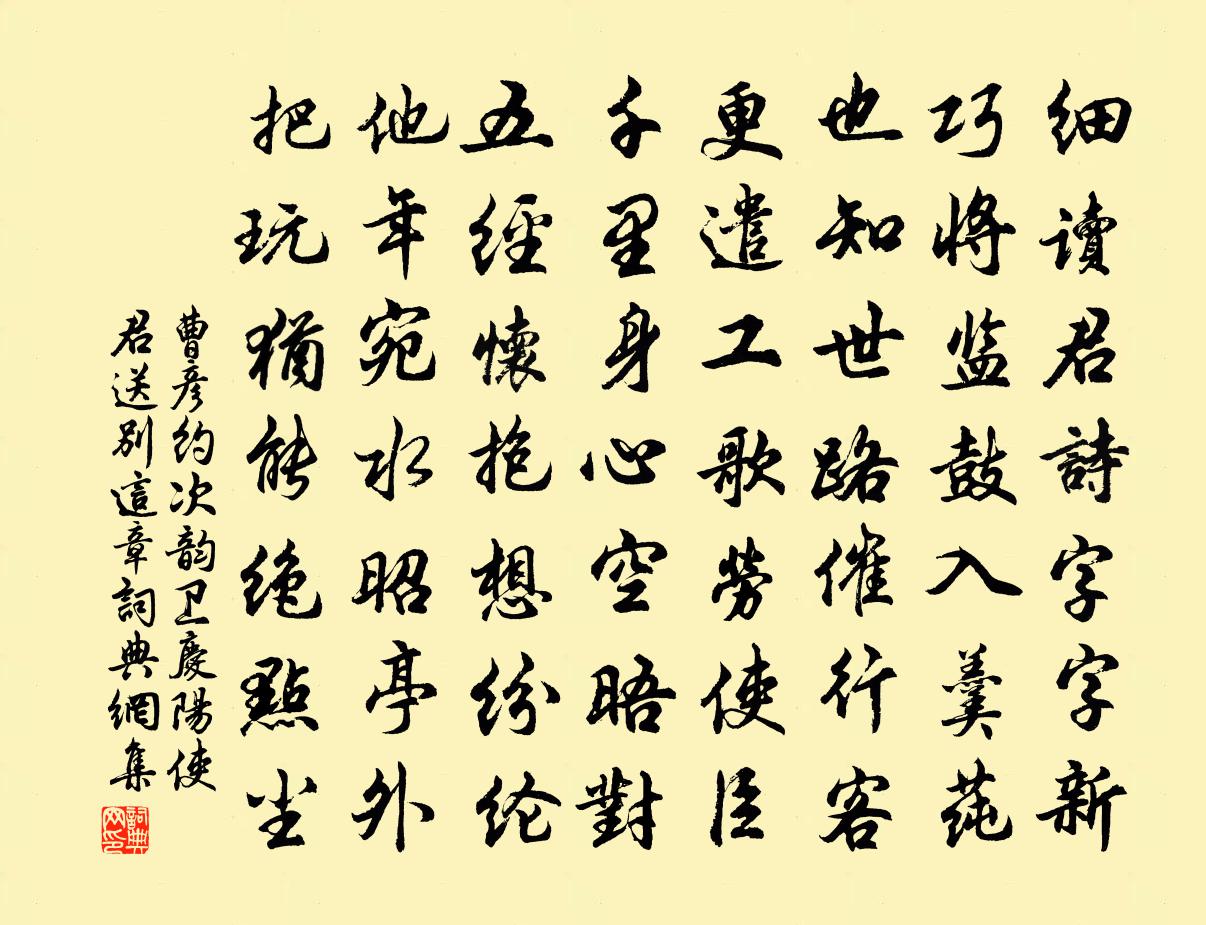 细讀君詩字字新
巧將监鼓入羹莼
也知世路催行客
更遣工歌勞使臣
千里身心空晤對
五經懷抱想纷纶
他年宛水昭亭外
把玩猶能绝點尘
曹彦约次韵卫慶陽使
君送别這章詞典網集
詞典网印